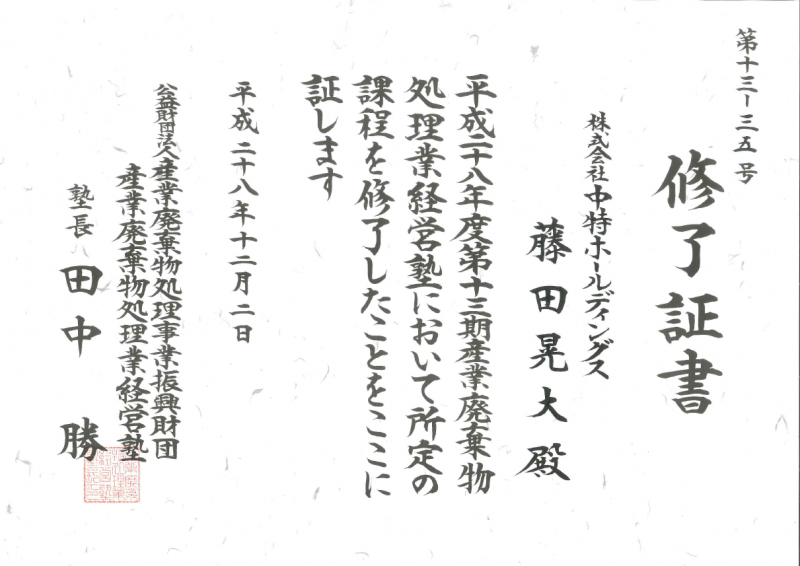 第十三ー三五号
修了証書
株式会社中特ホールディングス
藤田晃大殿
平成二十八年度第十三期産業廃棄物
処理業経営塾において所定の
課程を修了したことをここに
証します
平成二十八年十二月二日
公益財団法人産業廃棄物処理事業振興財団
産業廃棄物処理業経営塾
塾長 田中勝